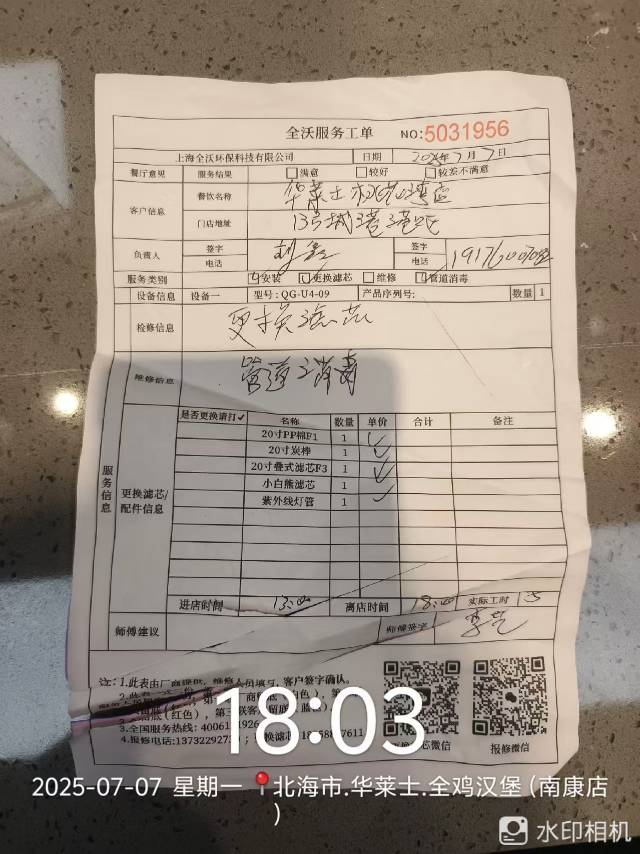 全沃服务工单 NO:5031956
上海全沃环保科技有限公司 日期 2025年7月7日
餐厅意见 服务结果 满意 较好 较差不满意
客户信息 餐饮名称 华莱士
门店地址
负责人 签字 签字
电话 电话
服务类别 安装 更换滤芯 维修 管道消毒
设备信息 设备一 型号:QG-U4-09 产品序列号: 数量 1
检修信息 更换滤芯
维修信息 管道消毒
服务信息
更换滤芯/配件信息
是否更换请打✓ 名称 数量 单价 合计 备注
20寸PP棉F1 1 ✓
20寸炭棒 1 ✓
20寸叠式滤芯F3 1 ✓
小白熊滤芯 1 ✓
紫外线灯管 1 ✓
进店时间 13:00 离店时间 18:00 实际工时 5
师傅建议 师傅签字
注:1.此表由厂商提供,维修人员填写,客户签字确认。
3.全国服务热线:
4.报修电话:
报修微信
18:03
2025-07-07 星期一 北海市.华莱士.全鸡汉堡(南康店
)
水印相机